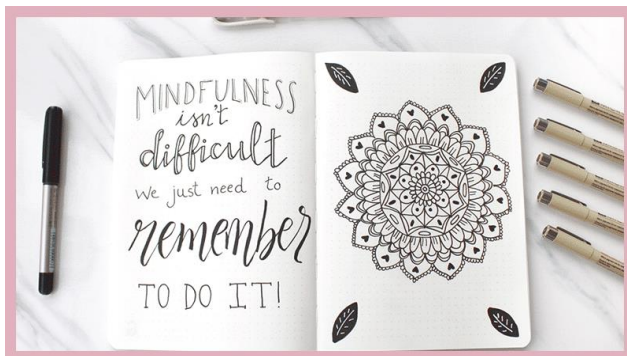 MINDFULNESS
isn't
difficult
We just need to
remember
TO DO IT!